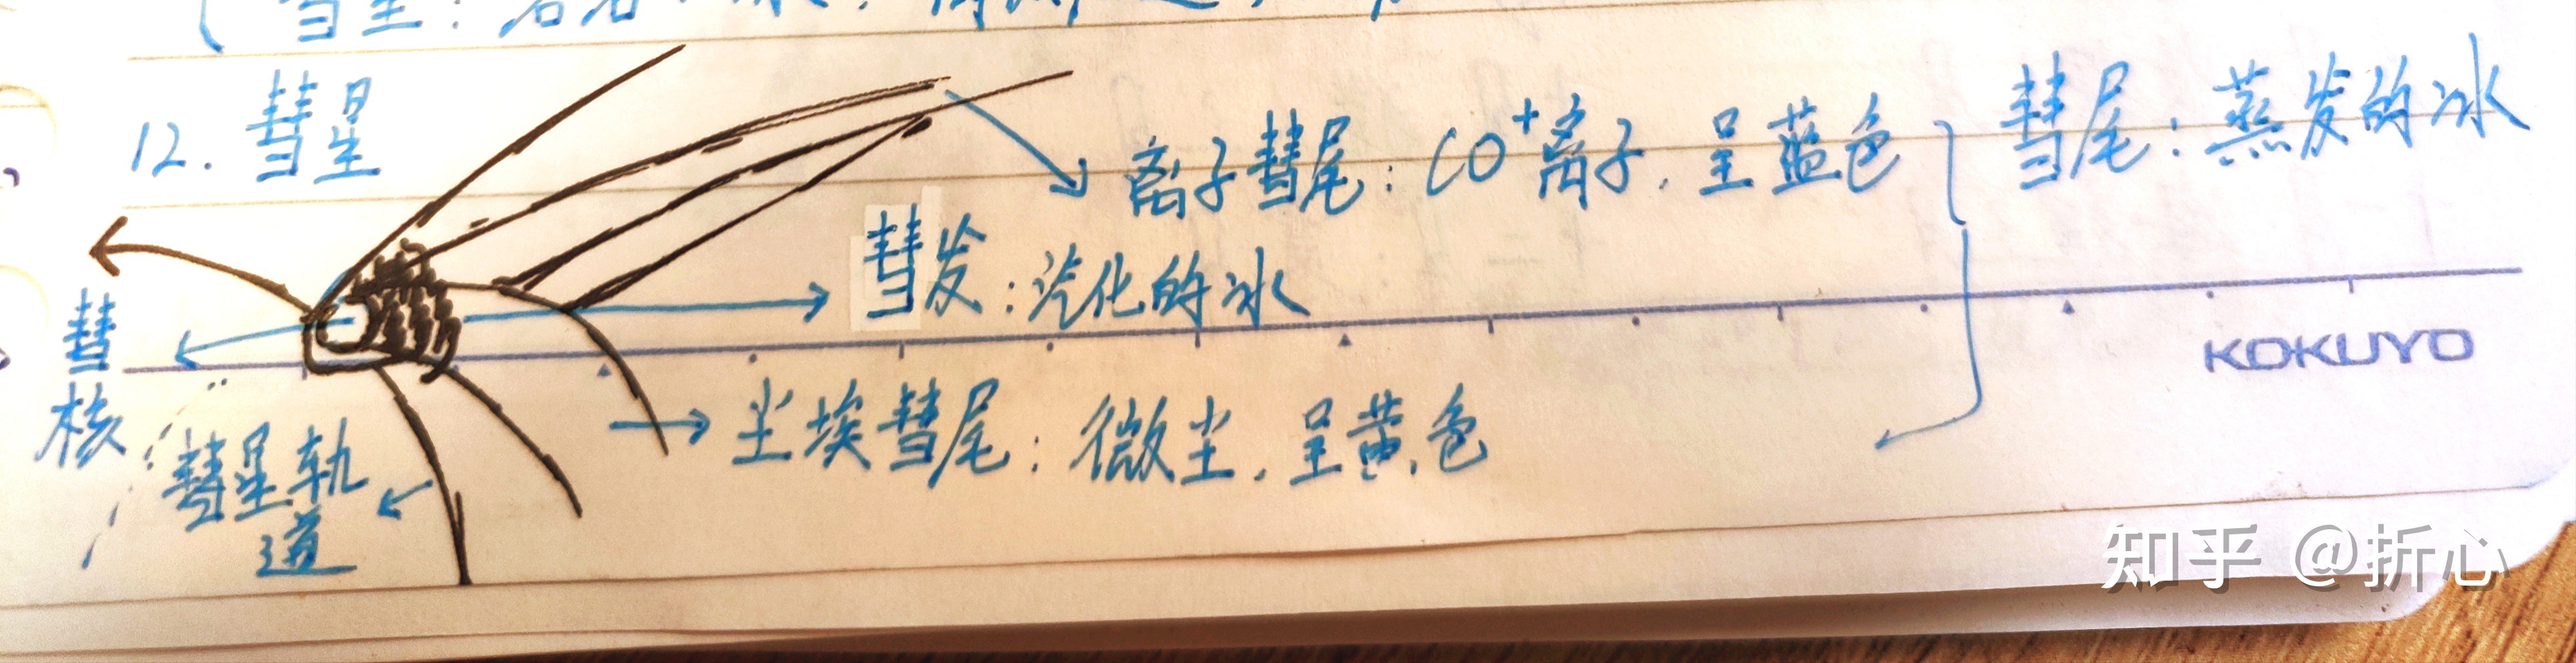 彗星：
12. 彗星
离子彗尾：CO⁺离子，呈蓝色
彗尾：蒸发的冰
彗发：汽化的冰
彗核
尘埃彗尾：微尘，呈黄色
彗星轨道
KOKUYO
知乎 @折心